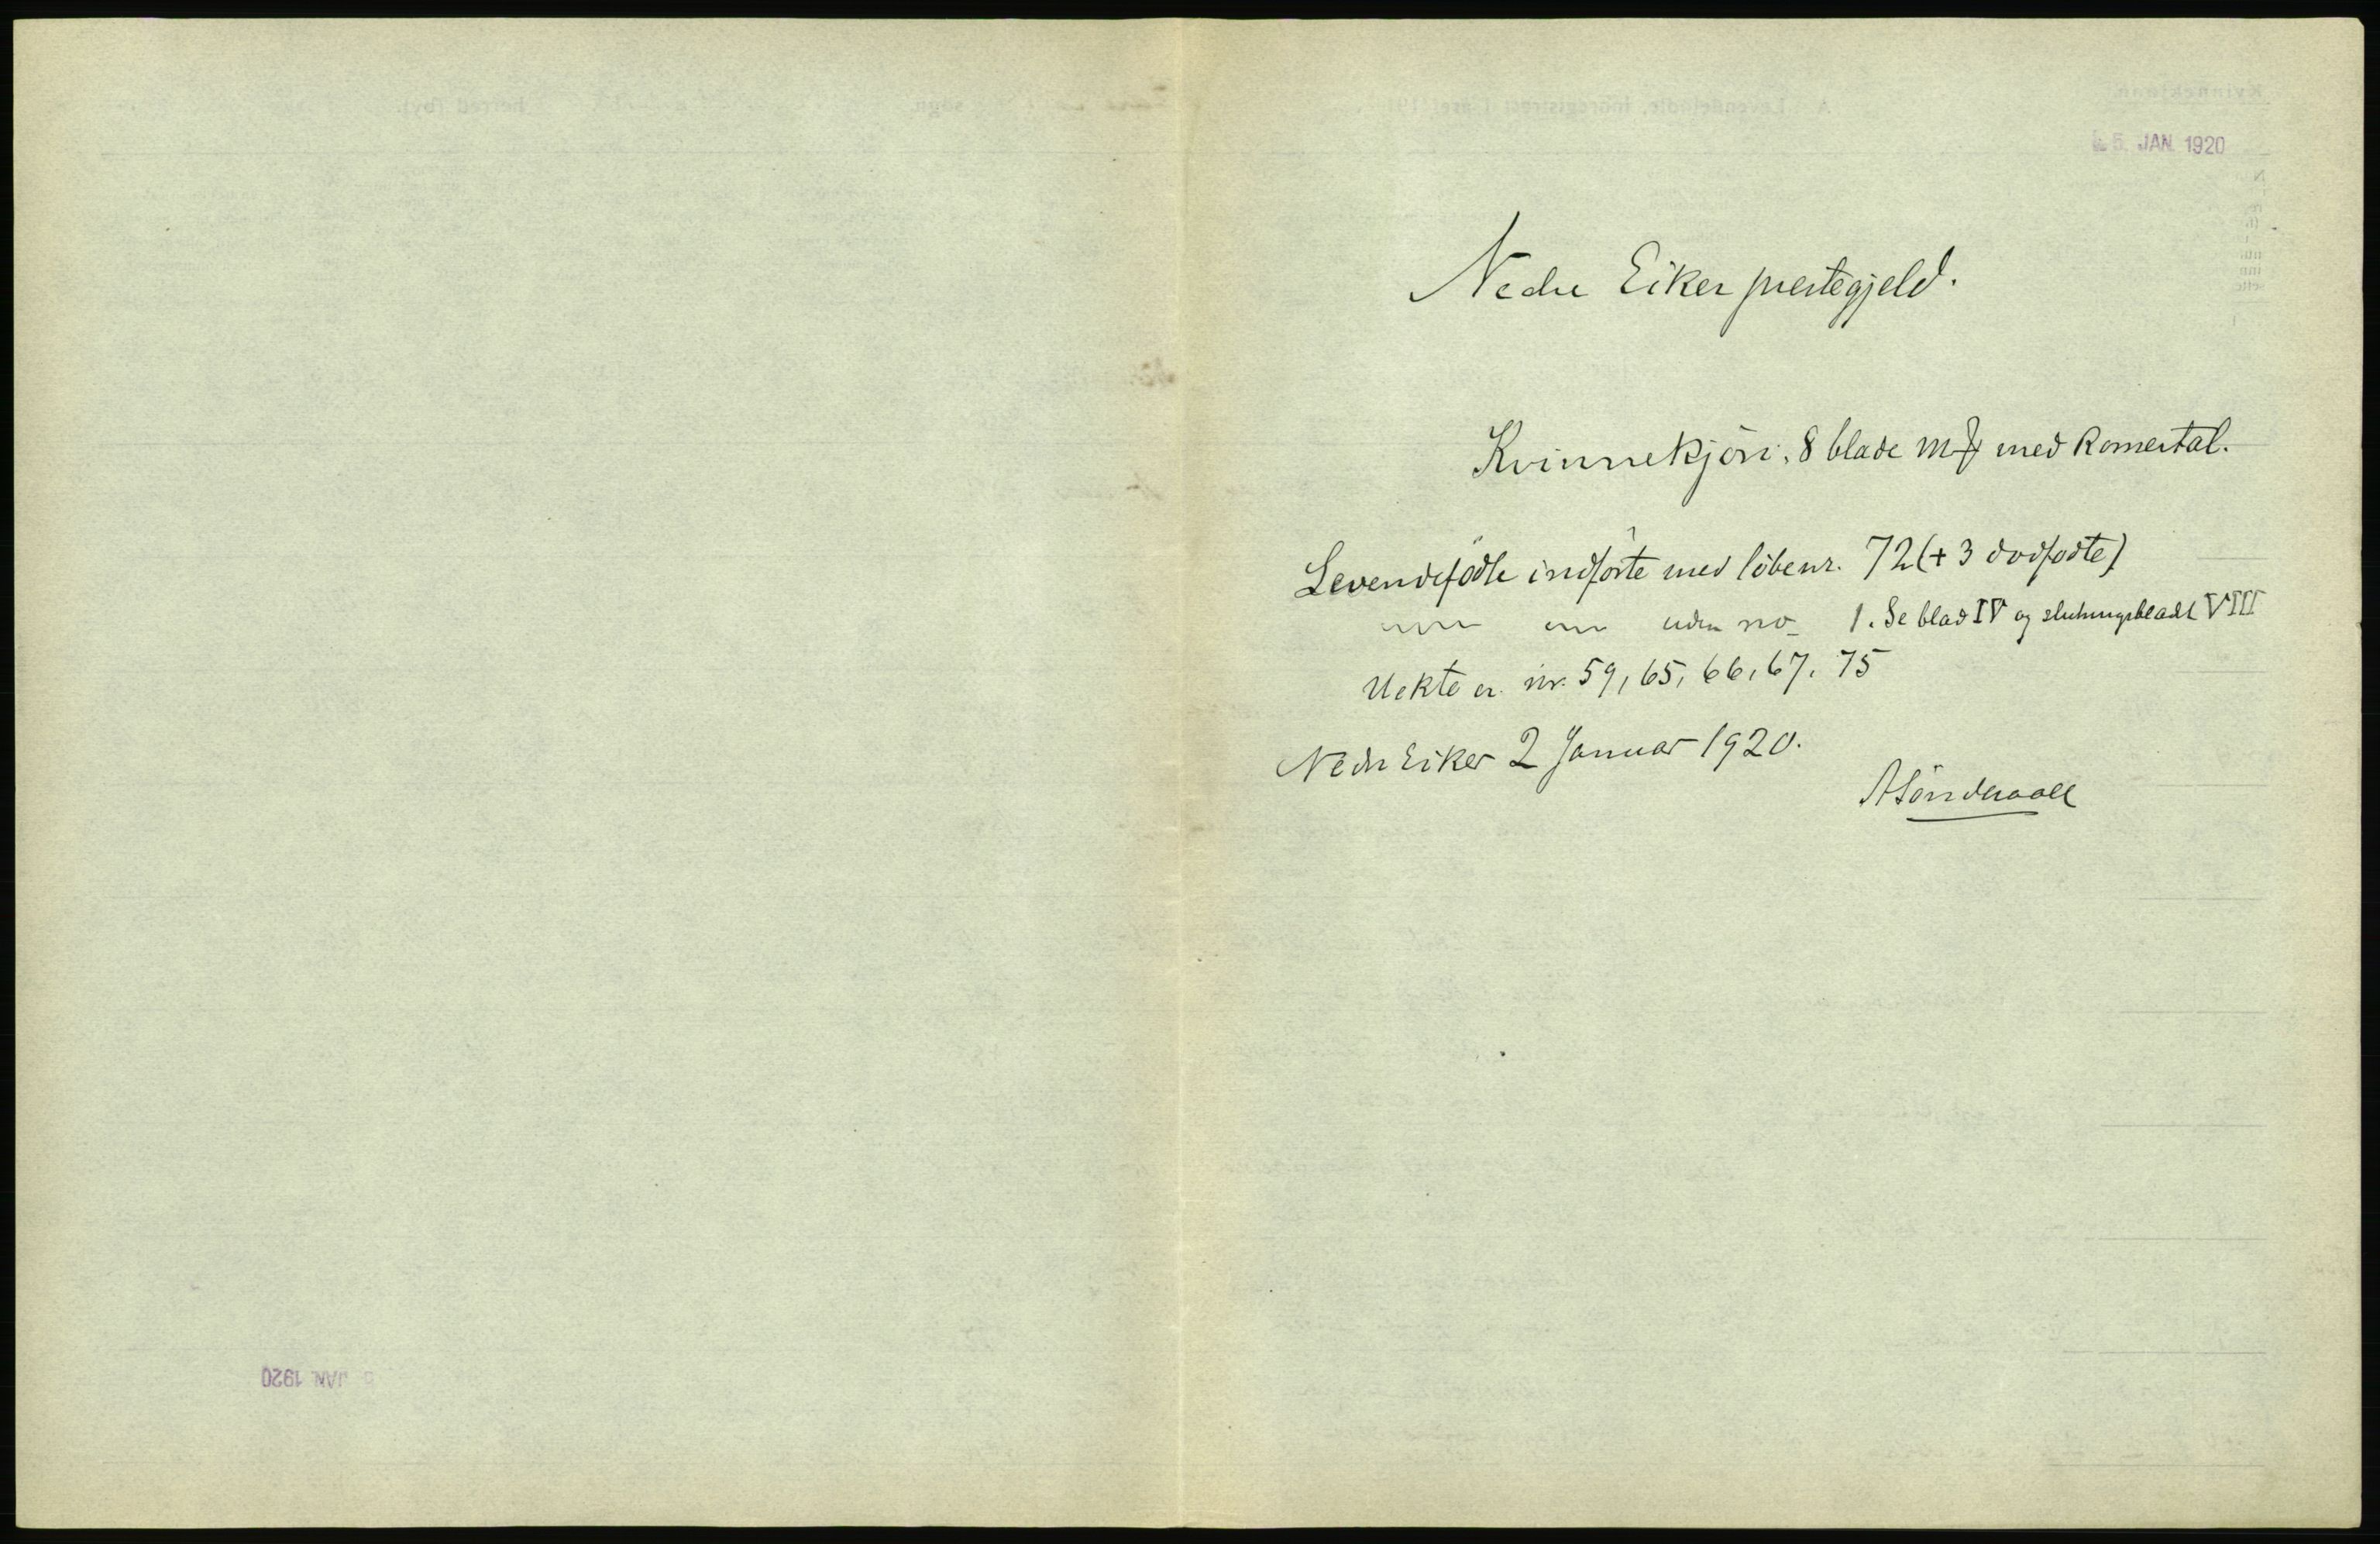 5. JAN. 1920
Nedre Eiker prestegjeld.
Kvinnekjön. 8 blade med Romertal.
Levendefödte indförte med löbenr. 72 (+ 3 dödfödte)
uden no 1. Se blad IV og slutningsbladet VIII
Uekte er nr. 59, 65, 66, 67, 75
Nedre Eiker 2 Januar 1920.
5 JAN. 1920